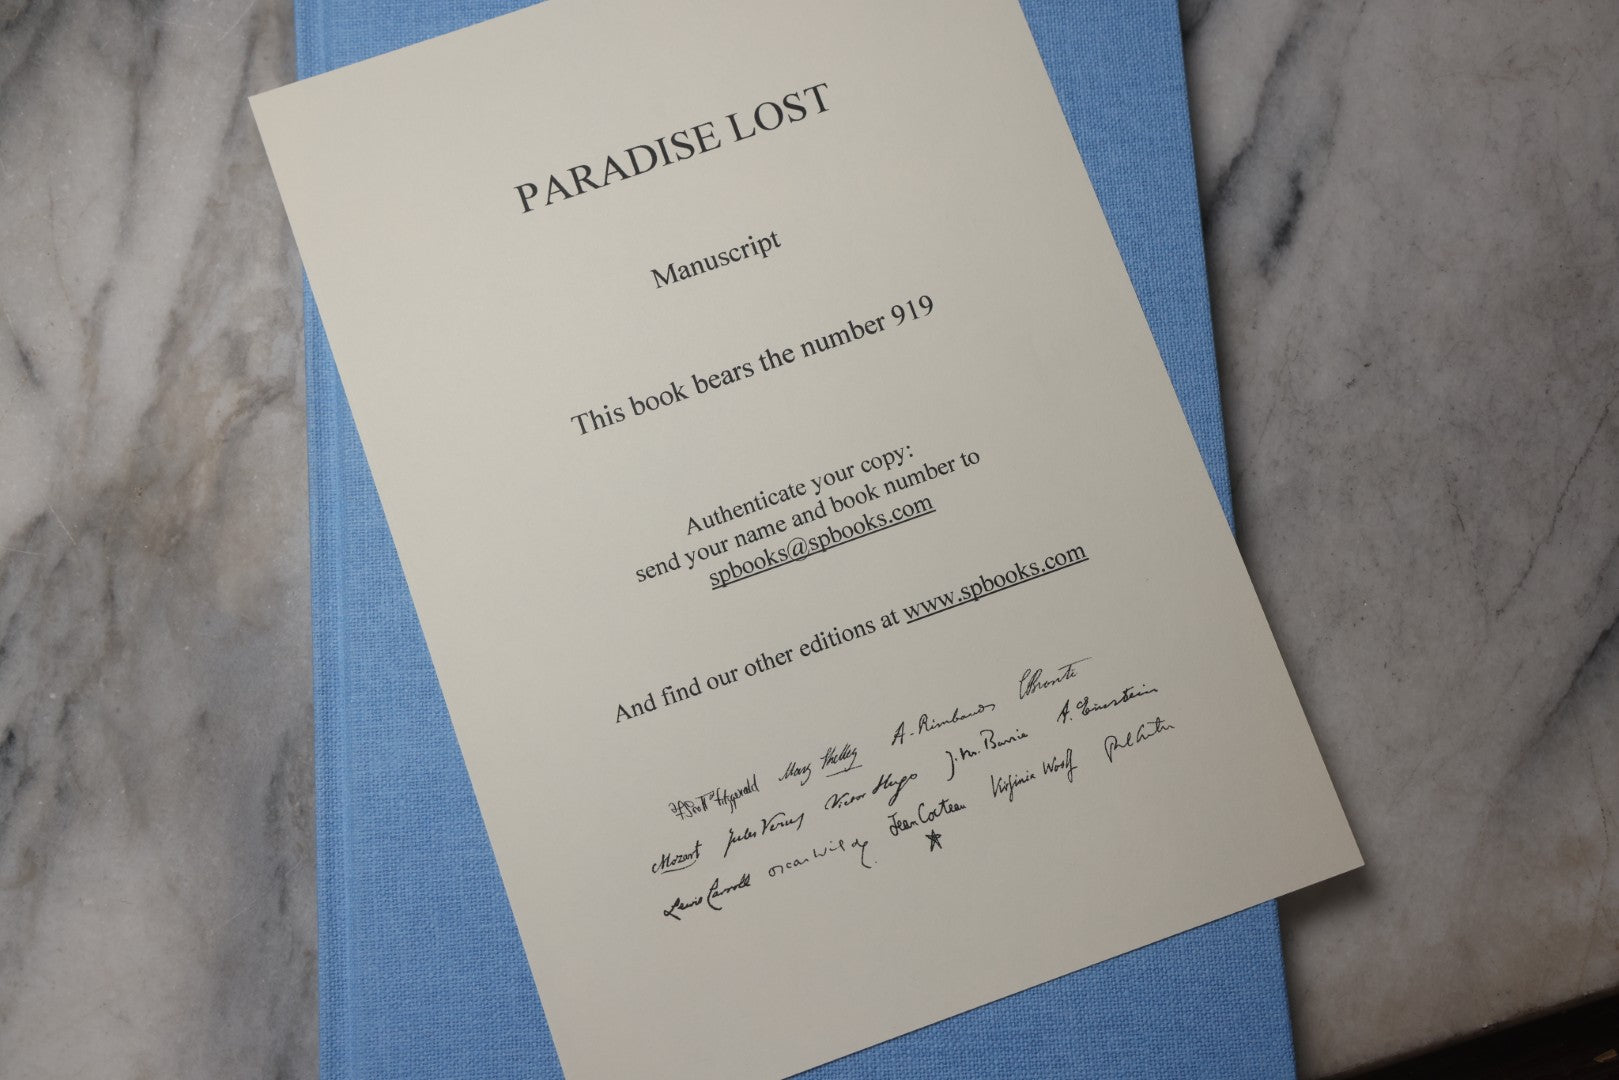 PARADISE LOST
Manuscript
This book bears the number 919
Authenticate your copy:
send your name and book number to
spbooks@spbooks.com
And find our other editions at www.spbooks.com
F Scott Fitzgerald Mary Shelley A. Rimbaud CBronte
Mozart Jules Verne Victor Hugo J.M. Barrie A. Einstein
Lewis Carroll Oscar Wilde Jean Cocteau Virginia Woolf